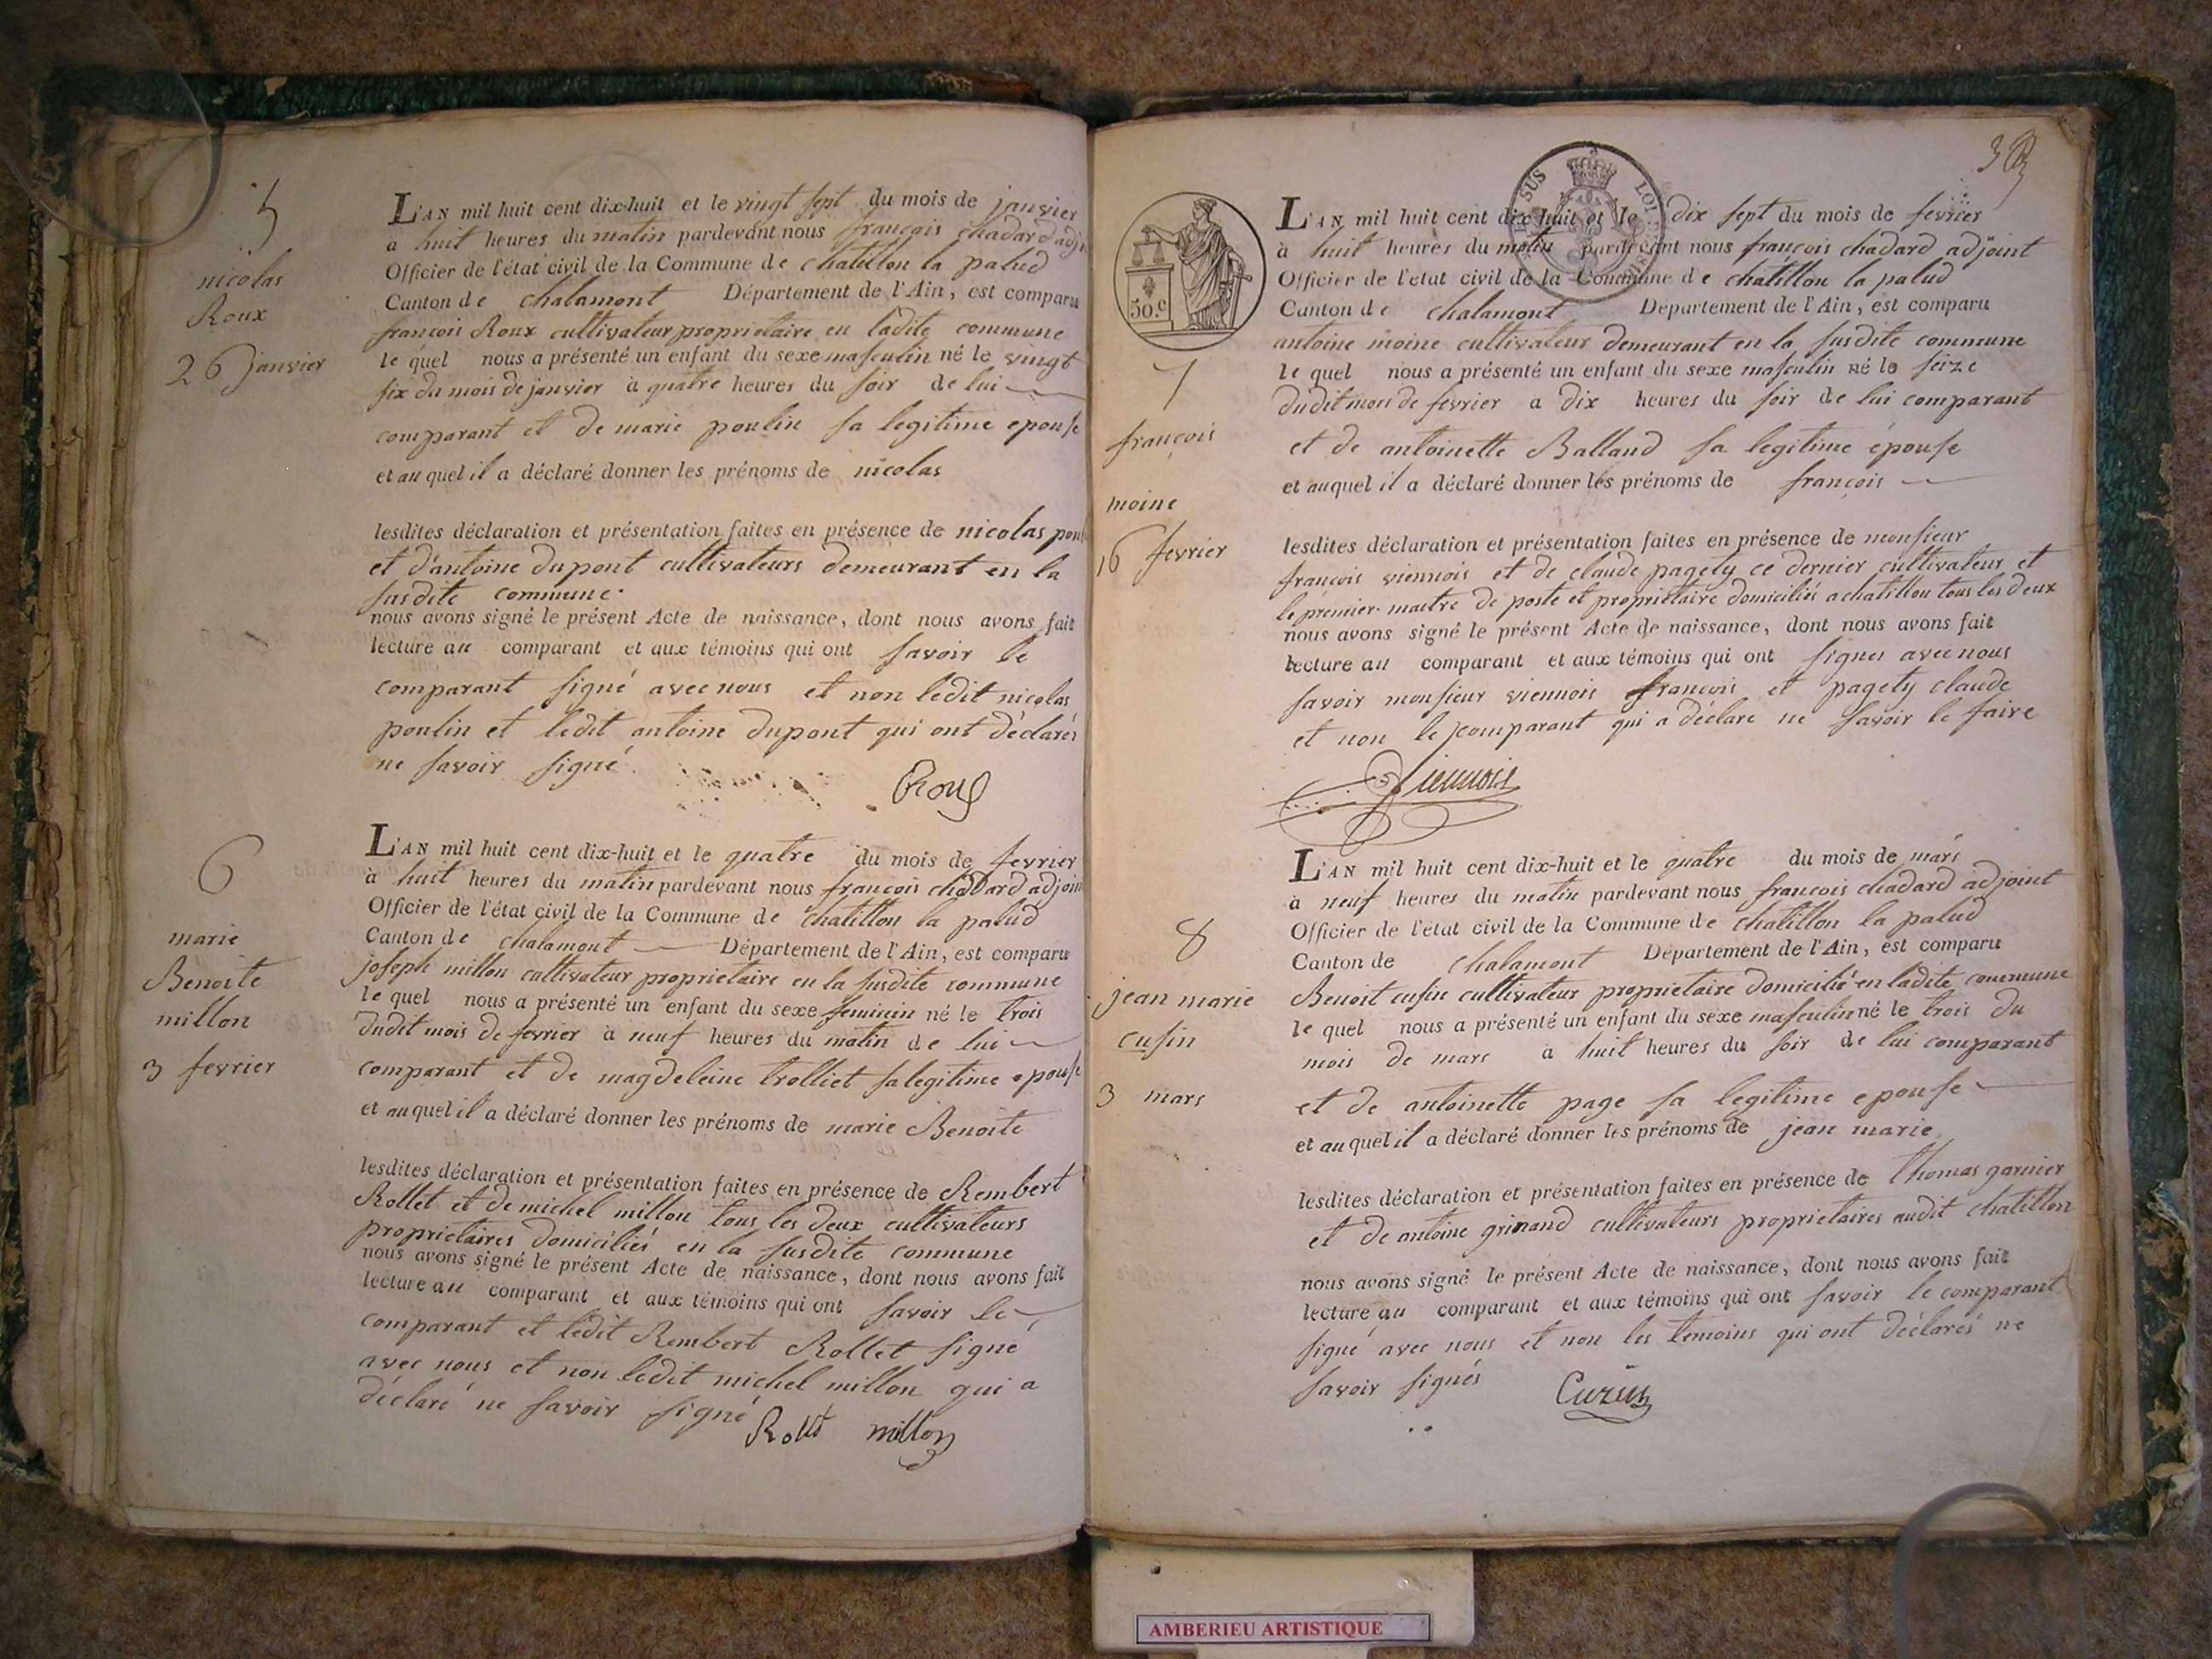 5
nicolas
Roux
26 janvier
L'AN mil huit cent dix-huit et le vingt sept du mois de janvier
a huit heures du matin pardevant nous françois chadard adj
Officier de l'état civil de la Commune de chatillon la palud
Canton de chalamont Département de l'Ain, est comparu
françois Roux cultivateur proprietaire en ladite commune
le quel nous a présenté un enfant du sexe masculin né le vingt
six du mois de janvier à quatre heures du soir de lui
comparant et de marie poulin sa legitime epouse
et au quel il a déclaré donner les prénoms de nicolas
lesdites déclaration et présentation faites en présence de nicolas pou
et d'antoine dupont cultivateurs demeurant en la
susdite commune.
nous avons signé le présent Acte de naissance, dont nous avons fait
lecture au comparant et aux témoins qui ont savoir le
comparant signé avec nous et non ledit nicolas
poulin et ledit antoine dupont qui ont déclarés
ne savoir signé
Roux
6
marie
Benoite
millon
3 fevrier
L'AN mil huit cent dix-huit et le quatre du mois de fevrier
à huit heures du matin pardevant nous françois chadard adjoin
Officier de l'état civil de la Commune de chatillon la palud
Canton de chalamont Département de l'Ain, est comparu
joseph millon cultivateur proprietaire en la susdite commune
le quel nous a présenté un enfant du sexe feminin né le trois
dudit mois de fevrier à neuf heures du matin de lui
comparant et de magdeleine trolliet sa legitime epouse
et au quel il a déclaré donner les prénoms de marie Benoite
lesdites déclaration et présentation faites en présence de Rembert
Rollet et de michel millon tous les deux cultivateurs
proprietaires domiciliés en la susdite commune
nous avons signé le présent Acte de naissance, dont nous avons fait
lecture au comparant et aux témoins qui ont savoir le
comparant et ledit Rembert Rollet signé
avec nous et non ledit michel millon qui a
déclaré ne savoir signé
Rollet millon
3
SUS LOI
50.c
7
françois
moine
16 fevrier
L'AN mil huit cent dix-huit et le dix sept du mois de fevrier
à huit heures du matin pardevant nous françois chadard adjoint
Officier de l'état civil de la Commune de chatillon la palud
Canton de chalamont Département de l'Ain, est comparu
antoine moine cultivateur demeurant en la susdite commune
le quel nous a présenté un enfant du sexe masculin né le seize
dudit mois de fevrier a dix heures du soir de lui comparant
et de antoinette Balland sa legitime épouse
et auquel il a déclaré donner les prénoms de françois
lesdites déclaration et présentation faites en présence de monsieur
françois viennois et de claude pagety ce dernier cultivateur et
le premier maitre de poste et proprietaire domiciliés a chatillon tous les deux
nous avons signé le présent Acte de naissance, dont nous avons fait
lecture au comparant et aux témoins qui ont signes avec nous
savoir monsieur viennois françois et pagety claude
et non le comparant qui a déclaré ne savoir le faire
Viennois
8
jean marie
cusin
3 mars
L'AN mil huit cent dix-huit et le quatre du mois de mars
à neuf heures du matin pardevant nous françois chadard adjoint
Officier de l'état civil de la Commune de chatillon la palud
Canton de chalamont Département de l'Ain, est comparu
Benoit cusin cultivateur proprietaire domicilié en ladite commune
le quel nous a présenté un enfant du sexe masculin né le trois du
mois de mars à huit heures du soir de lui comparant
et de antoinette page sa legitime epouse
et au quel il a déclaré donner les prénoms de jean marie
lesdites déclaration et présentation faites en présence de thomas garnier
et de antoine grinand cultivateurs proprietaires audit chatillon
nous avons signé le présent Acte de naissance, dont nous avons fait
lecture au comparant et aux témoins qui ont savoir le comparant
signé avec nous et non les temoins qui ont déclarés ne
savoir signés
Cuzin
AMBERIEU ARTISTIQUE